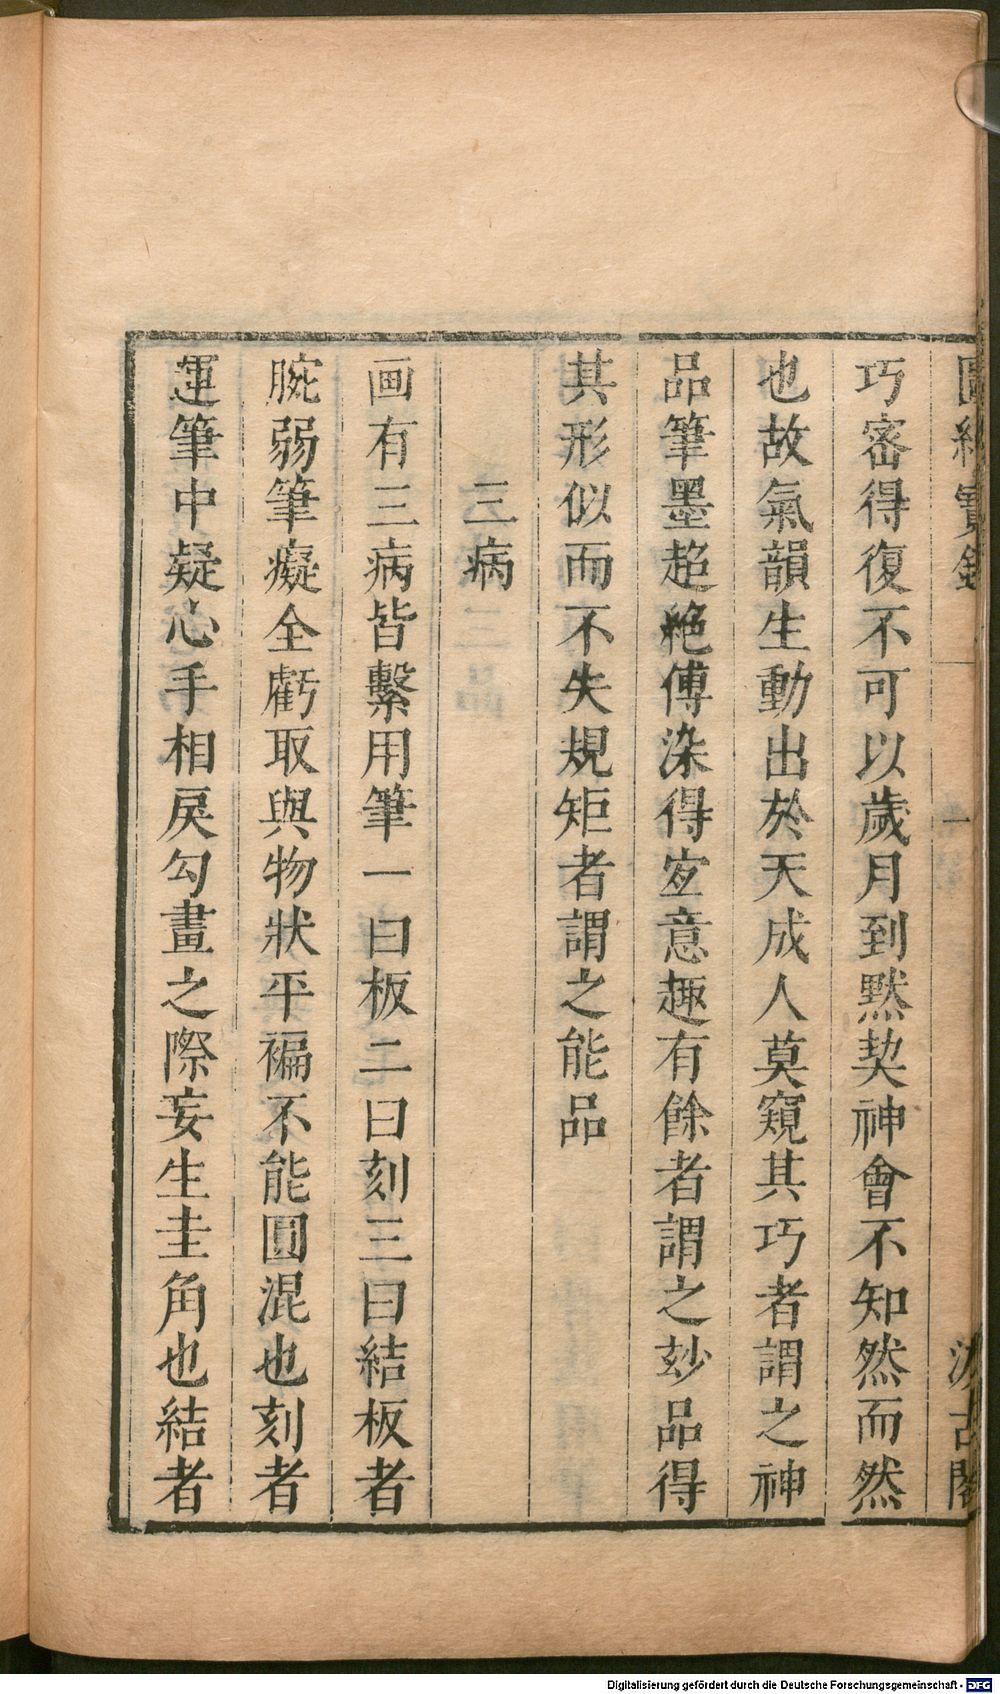 圖繪寶鑑 一 汲古閣
巧密得復不可以歲月到黙契神會不知然而然
也故氣韻生動出於天成人莫窺其巧者謂之神
品筆墨超絶傅染得宐意趣有餘者謂之玅品得
其形似而不失規矩者謂之能品
三病
画有三病皆繫用筆一曰板二曰刻三曰結板者
腕弱筆癡全虧取與物狀平褊不能圓混也刻者
運筆中疑心手相戾勾畫之際妄生圭角也結者
Digitalisierung gefördert durch die Deutsche Forschungsgemeinschaft - DFG